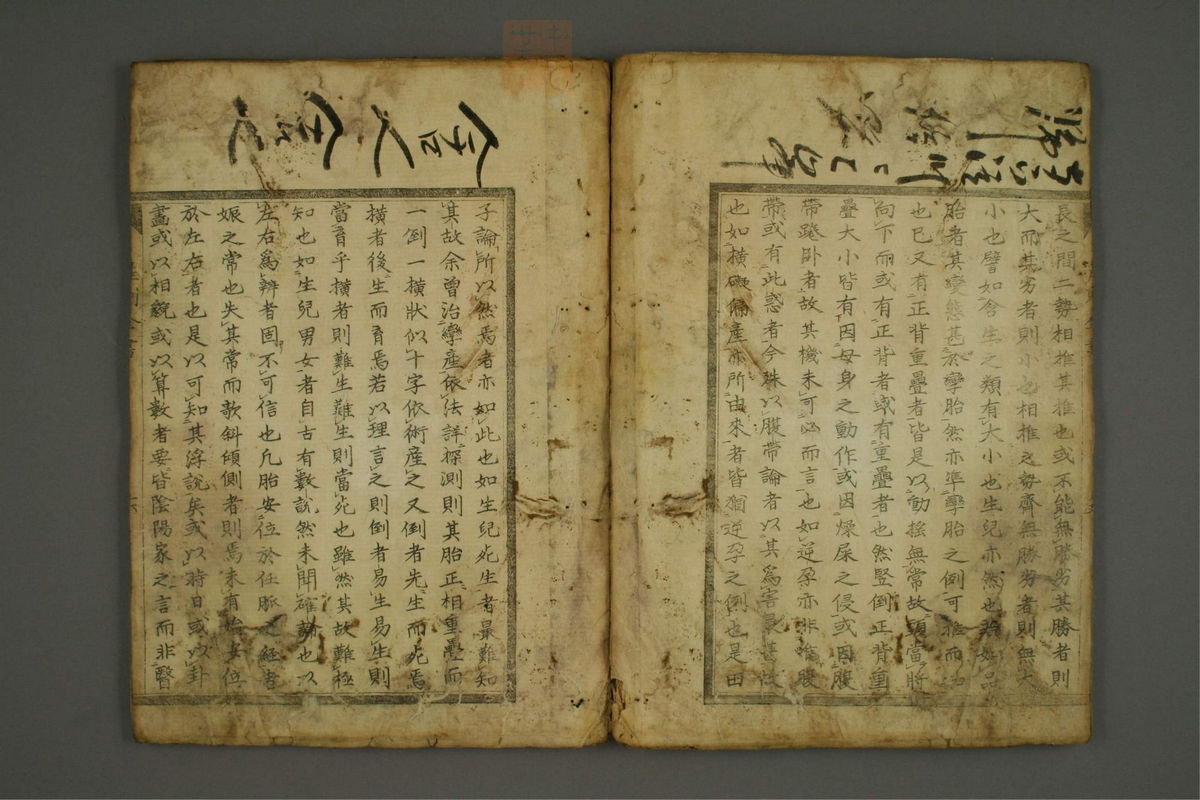 長之間二勢相推其推也或不能無勝劣其勝者則
大而其劣者則小也相推之勢齊無勝劣者則無大
小也譬如含生之類有大小也生兒亦然也若如品
胎者其變態甚於孿胎然亦準孿胎之例可推而知
也已又有正背重疊者皆是以動搖無常故頭當將
向下而或有正背者或有重疊者也然豎倒正背重
疊大小皆有因母身之動作或因燥屎之侵或因腹
帶踡臥者故其機未可必而言也如逆孕亦非唯腹
帶或有此惑者今殊以腹帶論者以其爲害最甚故
也如橫礙偏產亦所由來者皆猶逆孕之例也是由
子論所以然焉者亦如此也如生兒死生者最難知
其故余曾治孿產依法詳探測則其胎正相重疊而
一倒一橫狀似十字依術產之又倒者先生而死焉
橫者後生而育焉若以理言之則倒者易生易生則
當育乎橫者則難生難生則當死也雖然其故難極
知也如生兒男女者自古有數說然未聞確論也以
左右爲辨者固不可信也凡胎安位於任脈之經者
娠之常也失其常而欹斜傾側者則焉未有始安位
於左右者也是以可知其浮說矣或以時日或以卦
畫或以相貌或以算數者要皆陰陽家之言而非醫